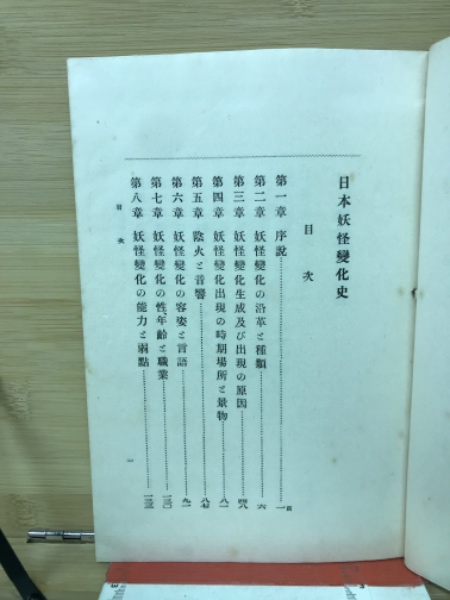 日本妖怪變化史
目次
頁
第一章 序說……一
第二章 妖怪變化の沿革と種類……六
第三章 妖怪變化生成及び出現の原因……四八
第四章 妖怪變化出現の時期場所と景物……八一
第五章 陰火と音響……八七
第六章 妖怪變化の容姿と言語……九一
第七章 妖怪變化の性年齡と職業……一三〇
第八章 妖怪變化の能力と弱點……一三三
目次